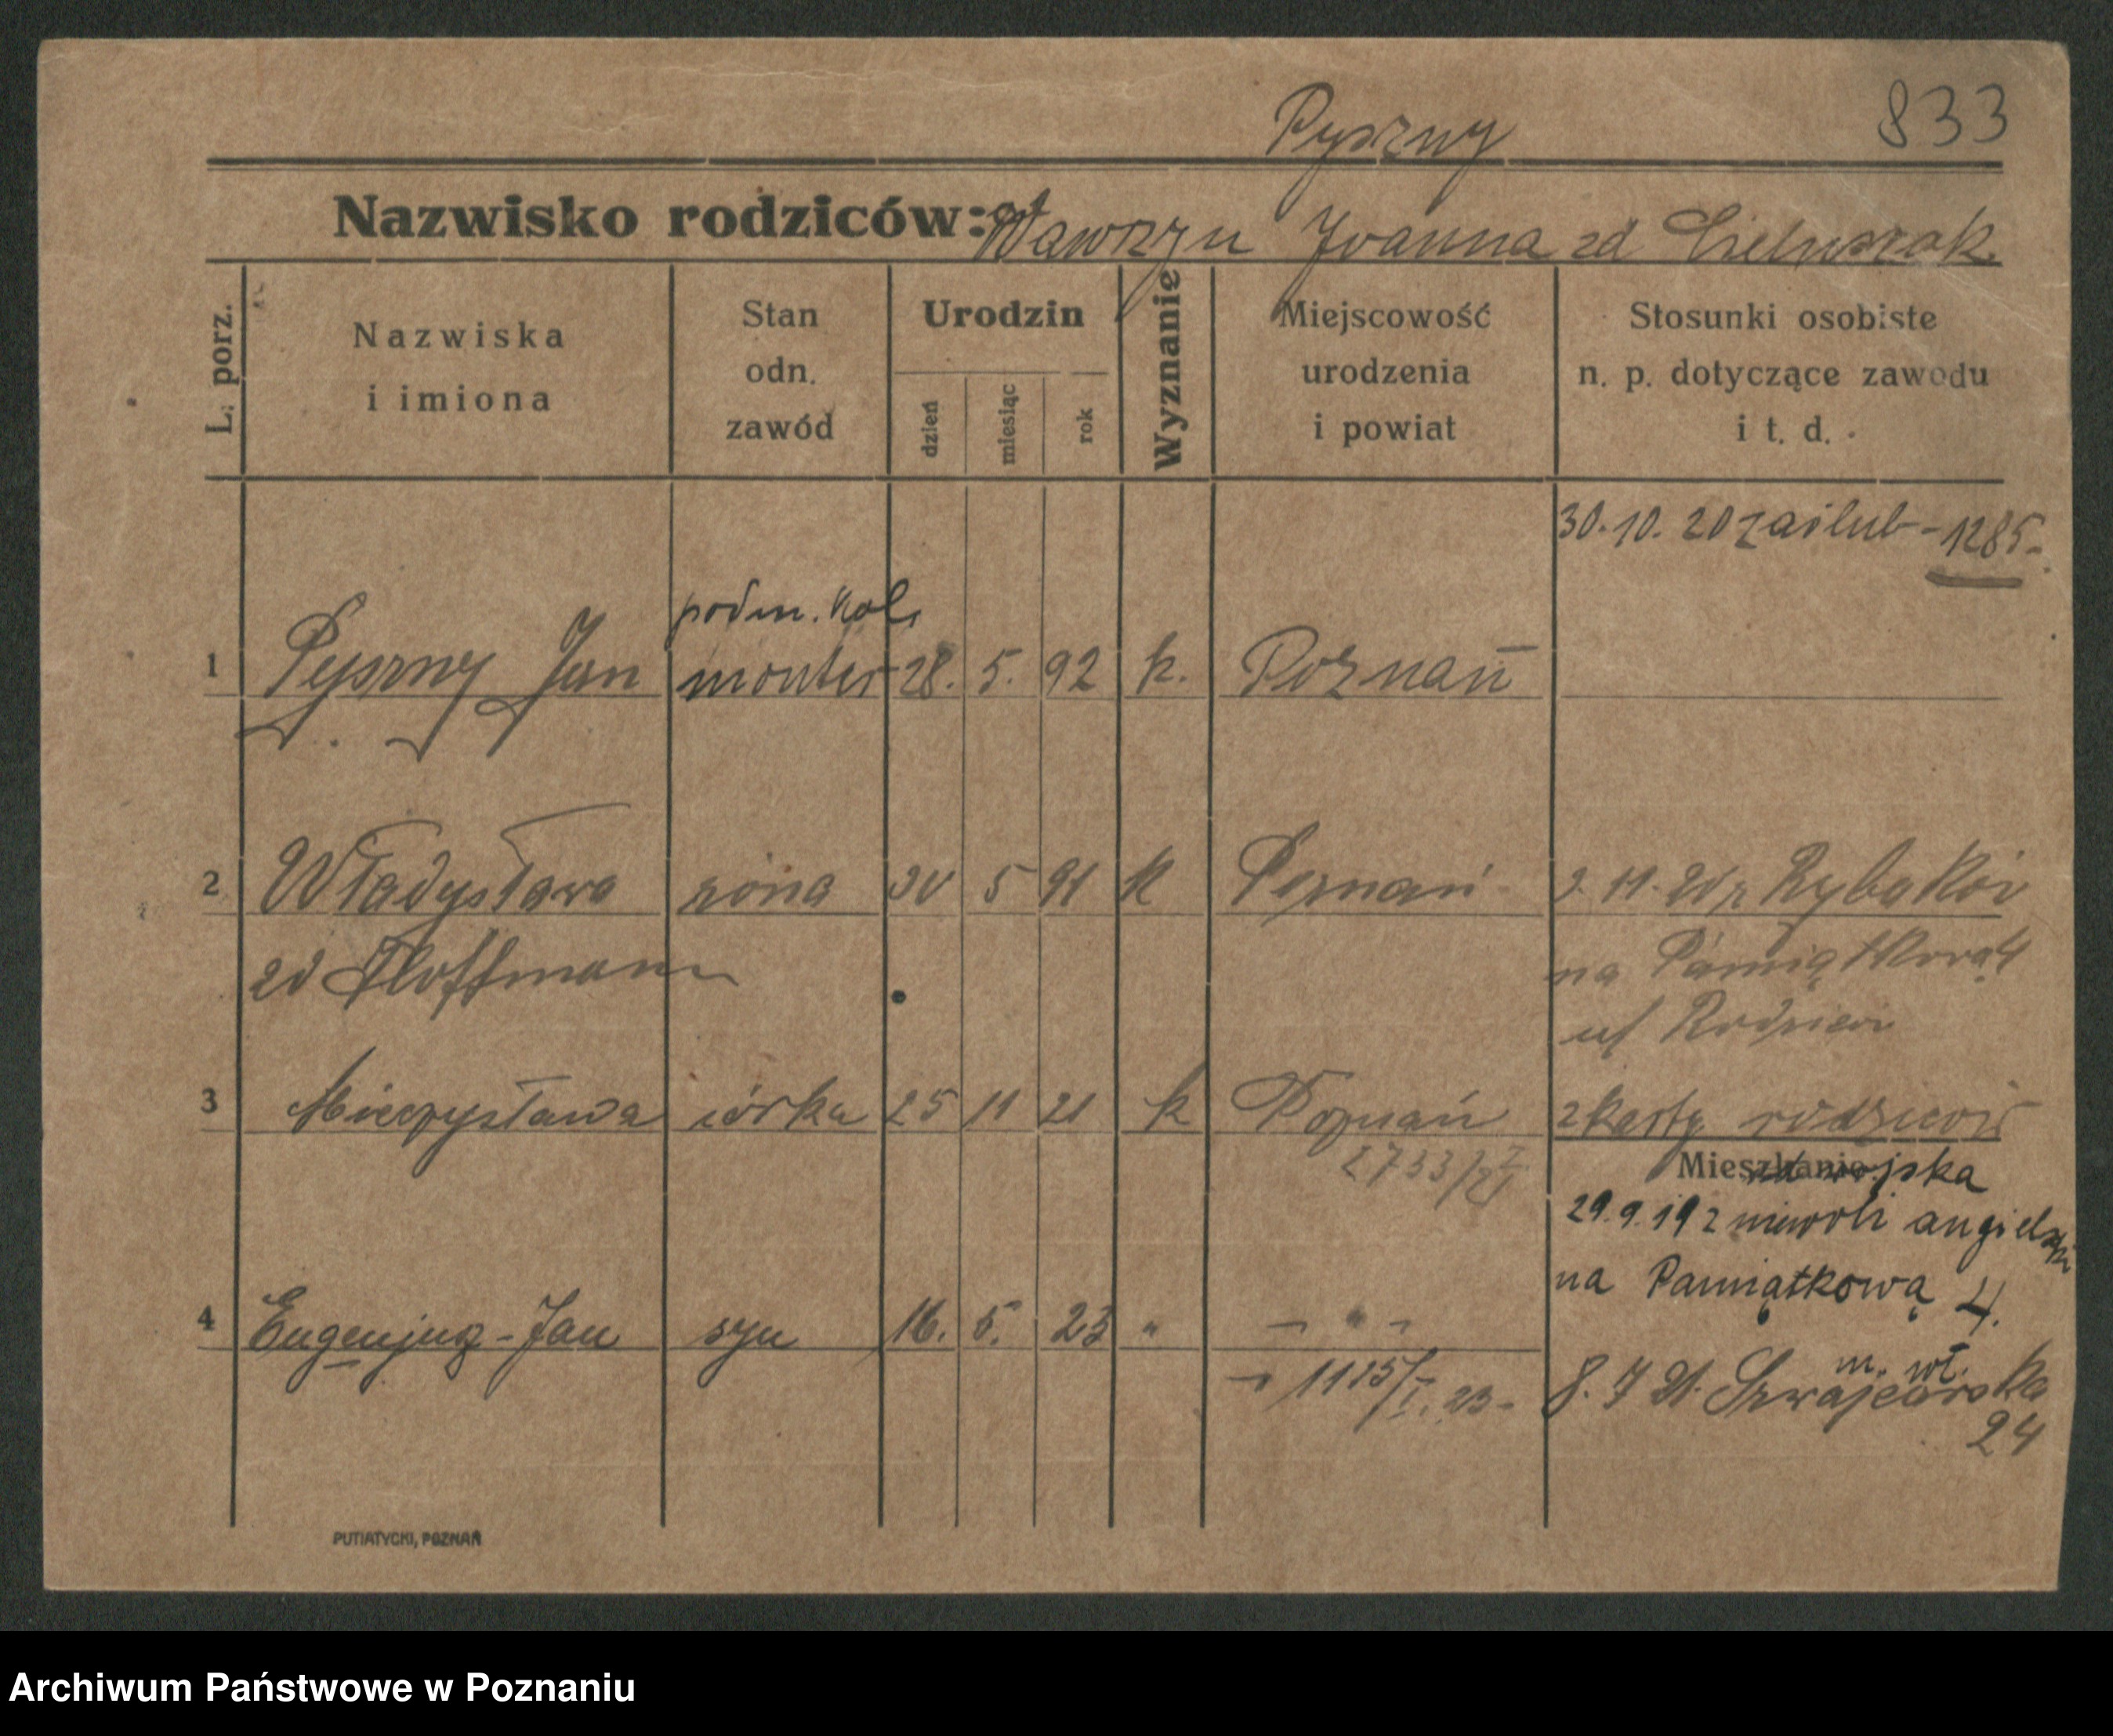 833
Pyszny
Nazwisko rodziców: Wawrzyn Joanna zd
L. porz.
Nazwiska i imiona
Stan odn. zawód
Urodzin
dzień miesiąc rok
Wyznanie
Miejscowość urodzenia i powiat
Stosunki osobiste n. p. dotyczące zawodu i t. d.
30.10.20 zaślub - 1285-
podm. kol.
1 Pyszny Jan monter 28. 5. 92 k. Poznań
2 Władysława żona 30 5 91 k Poznań 11. Rybaków
zd Hoffmann na Pamiątkową
u/ Rodziców
3 Mieczysława córka 25 11 21 k Poznań z karty rodziców
2733/21
Mieszkanie: wojska
29.9.19 z niewoli angielski
na Pamiątkową 4.
4 Eugenjusz-Jan syn 16. 5. 23 " - " -
m. wł.
8. 7 21. Szwajcarska
24
PUTIATYCKI, POZNAŃ
Archiwum Państwowe w Poznaniu